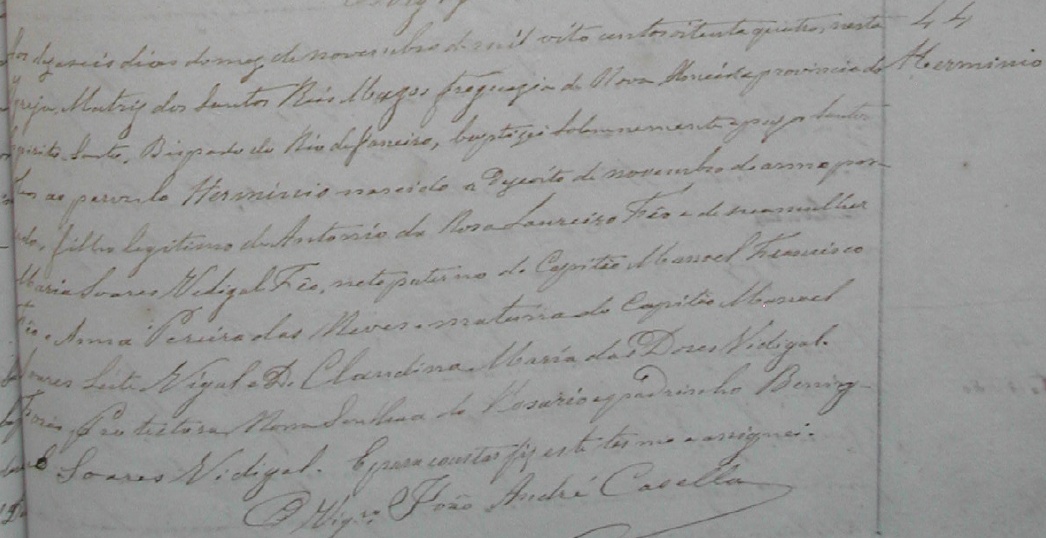 44
Herminio
Aos dezaseis dias do mez de novembro de mil oito centos oitenta quatro, nesta
Igreja Matriz dos Santos Reis Magos freguezia de Nova Almeida provincia do
Espirito Santo, Bispado do Rio de Janeiro, baptizei solemnemente e puz os Santos
Oleos ao parvulo Herminio nascido a dezoito de novembro do anno pas-
sado, filho legitimo de Antonio da Rosa Loureiro Fêo e de sua mulher
Maria Soares Vidigal Fêo, neto paterno do Capitão Manoel Francisco
Fêo e Anna Pereira das Neves e materna do Capitão Manoel
Soares Leite Vigal e D. Claudina Maria das Dores Vidigal.
Foram Protectora Nossa Senhora do Rosario e padrinho Benig-
Soares Vidigal. E para constar fiz este termo e assignei.
O Vigro João André Casella